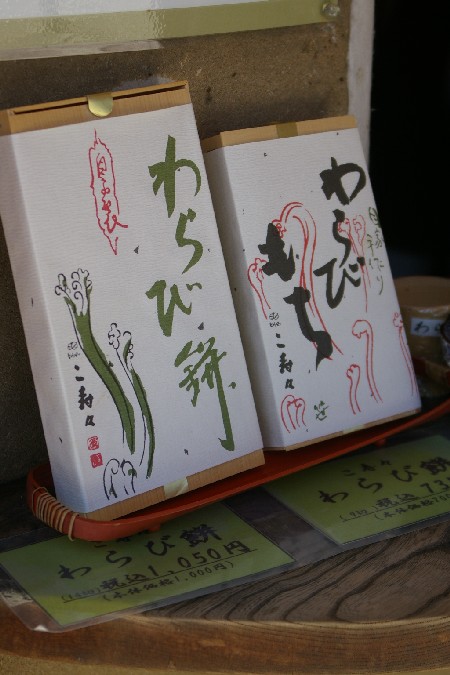 わらび餅
こ寿々
わらび
もち
こ寿々
わらび餅
税込1,050円
(本体価格1,000円)
こ寿々
わらび餅
税込 73